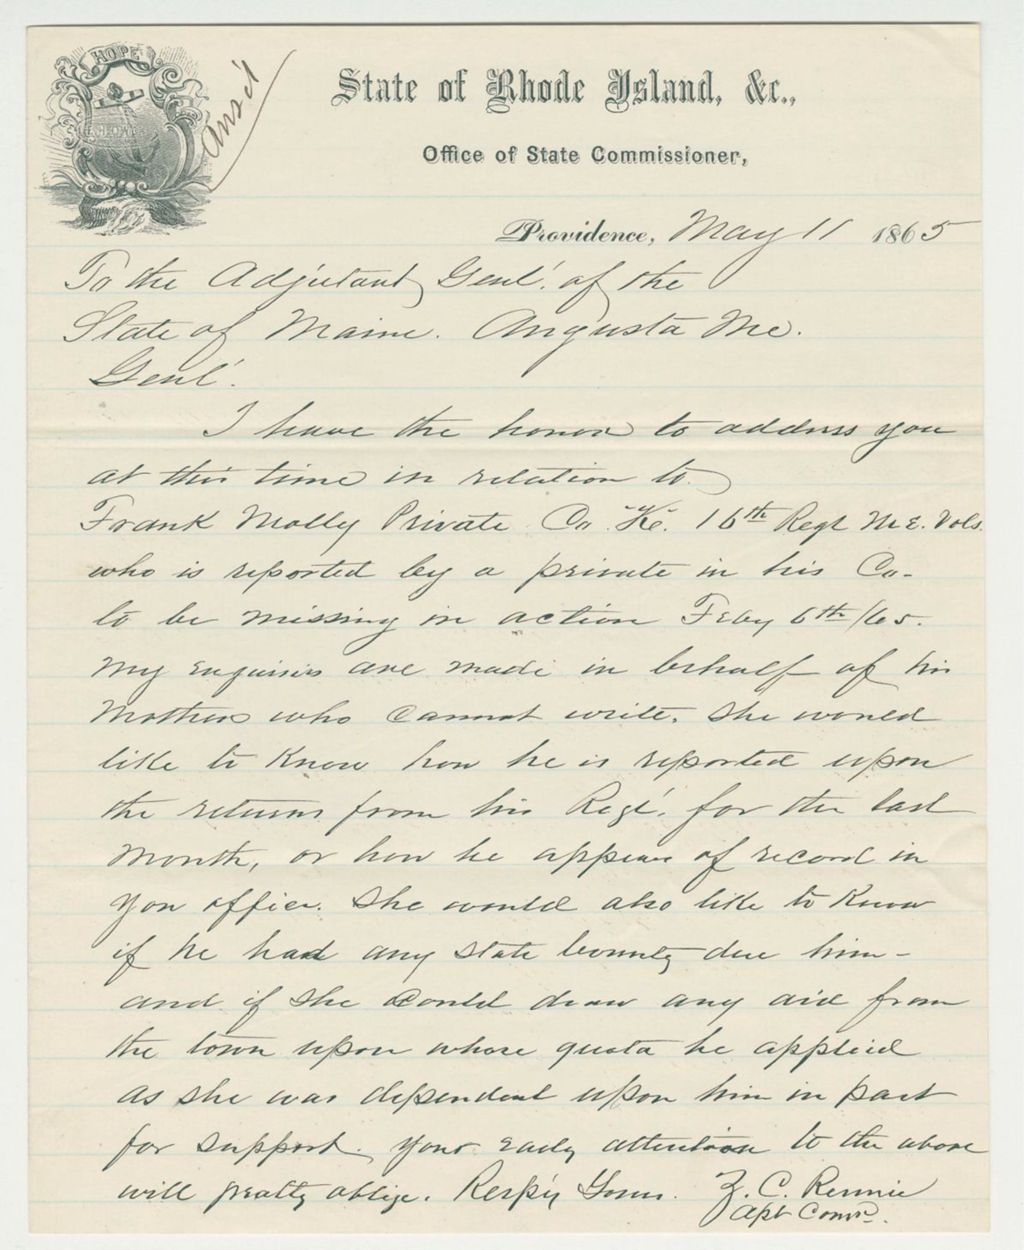 HOPE
Ans'd
State of Rhode Island, &c.,
Office of State Commissioner,
Providence, May 11 1865
To the Adjutant Genl'. of the
State of Maine. Augusta Me.
Genl'.
I have the honor to address you
at this time in relation to
Frank Molly Private Co. "K". 16th Regt Me. Vols.
who is reported by a private in his Co-
to be missing in action Feby 6th/65.
My enquiries are made in behalf of his
Mother who cannot write. She would
like to know how he is reported upon
the returns from his Regt'. for the last
Month, or how he appears of record in
you office. She would also like to know
if he had any state bounty due him-
and if she could draw any aid from
the town upon whose quota he applied
as she was dependent upon him in part
for support. Your early attention to the above
will greatly oblige. Resp'y Yours. Z. C. Rennie
Apt Comr.